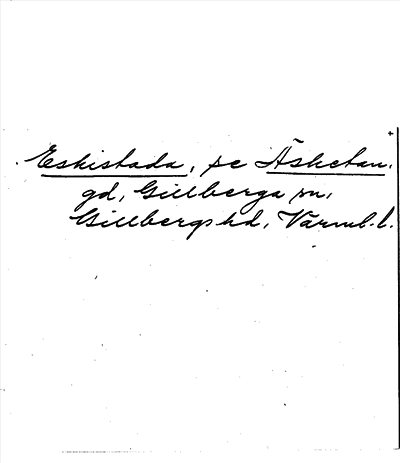 Eskistada, se Äsketan.
gd, Gillberga sn,
Gillbergs hd, Värml. l.